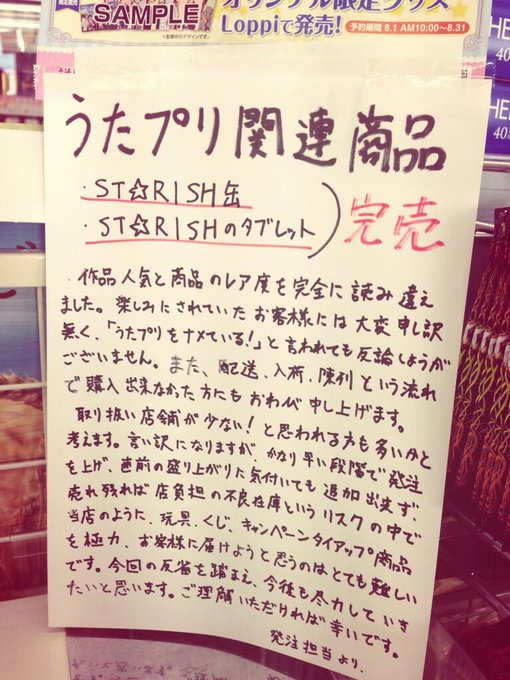 SAMPLE
※監修中のデザインです。
オリジナル限定グッズ
Loppiで発売!
予約期間 8.1 AM10:00〜8.31
うたプリ関連商品
・ST☆RISH缶
・ST☆RISHのタブレット
完売
・作品人気と商品のレア度を完全に読み違え
ました。楽しみにされていたお客様には大変申し訳
無く、「うたプリをナメている!」と言われても反論しようが
ございません。また、配送、入荷、陳列という流れ
で購入出来なかった方にもおわび申し上げます。
取り扱い店舗が少ない!と思われる方も多いかと
考えます。言い訳になりますが、かなり早い段階で発注
を上げ、直前の盛り上がりに気付いても追加出来ず、
売れ残れば店負担の不良在庫というリスクの中で
当店のように、玩具、くじ、キャンペーンタイアップ商品
を極力、お客様に届けようと思うのはとても難しい
です。今回の反省を踏まえ、今後も尽力していき
たいと思います。ご理解いただければ幸いです。
発注担当より、
HE
40
HEL
405